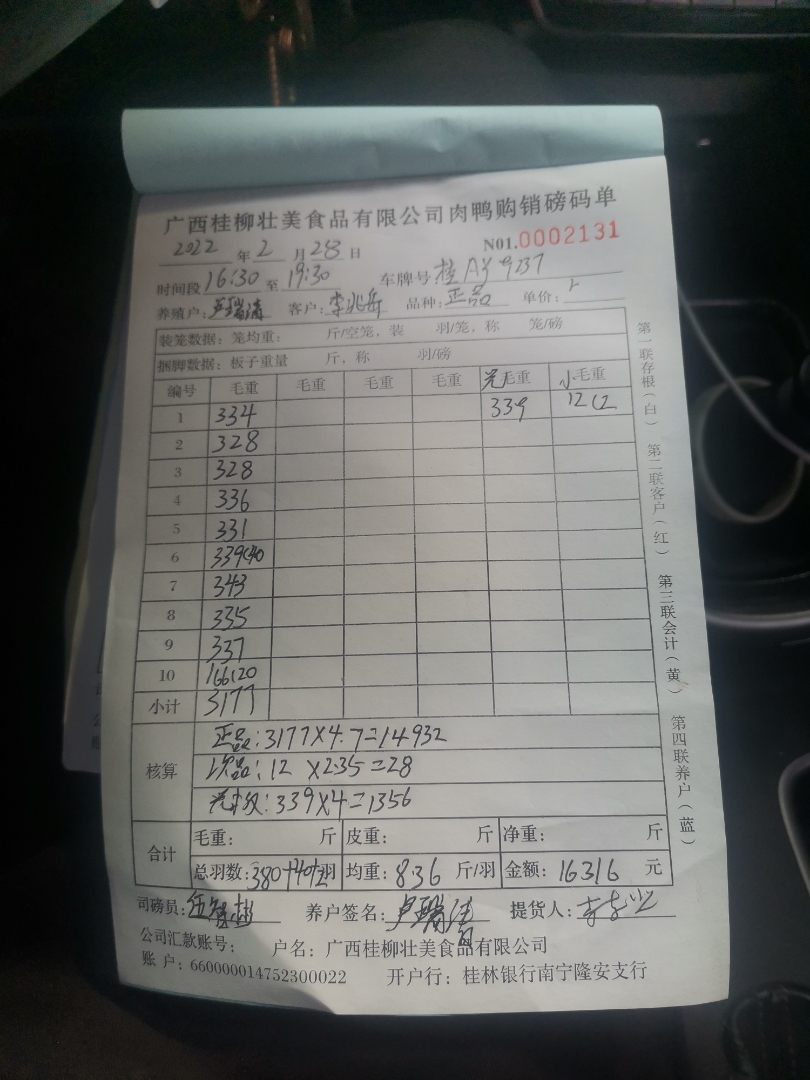 广西桂柳壮美食品有限公司肉鸭购销磅码单
2022 年 2 月 28 日 N01.0002131
时间段 16:30 至 19:30 车牌号 桂AY9237
养殖户: 卢瑞清 客户: 李兆岳 品种: 正品 单价:
装笼数据: 笼均重: 斤/空笼, 装 羽/笼, 称 笼/磅
捆脚数据: 板子重量 斤, 称 羽/磅
编号 毛重 毛重 毛重 毛重 毛重 小毛重
1 334 339 12(2
2 328
3 328
4 336
5 331
6 339(40
7 343
8 335
9 337
10 166(20
小计 3177
核算
正品:3177X4.7=14932
次品:12 X2.35=28
339X4=1356
合计
毛重: 斤 皮重: 斤 净重: 斤
总羽数:380+40+2羽 均重: 8.36 斤/羽 金额: 16316 元
司磅员: 养户签名: 卢瑞清 提货人:
公司汇款账号: 户名: 广西桂柳壮美食品有限公司
账 户: 660000014752300022 开户行: 桂林银行南宁隆安支行
第一联存根(白) 第二联客户(红) 第三联会计(黄) 第四联养户(蓝)